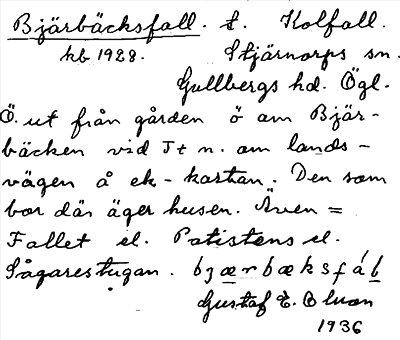 Bjärbäcksfall. t. Kolfall.
kb 1928. Stjärnorps sn.
Gullbergs hd. Ögl.
Ö. ut från gården ö om Bjär-
bäcken vid T t n. om lands-
vägen å ek-kartan. Den som
bor där äger husen. Även =
Fallet el. Patistens el.
Sågarestugan. bjærbæksfáḷ
Gustaf E. Olson
1936